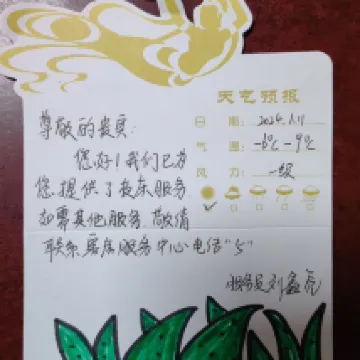 天气预报
日 期: 2024.1.11
气 温: -6℃-9℃
风 力: 一级
尊敬的贵宾:
您好!我们已为
您提供了夜床服务
如需其他服务.敬请
联系客房服务中心电话"5"
服务员刘鑫亮